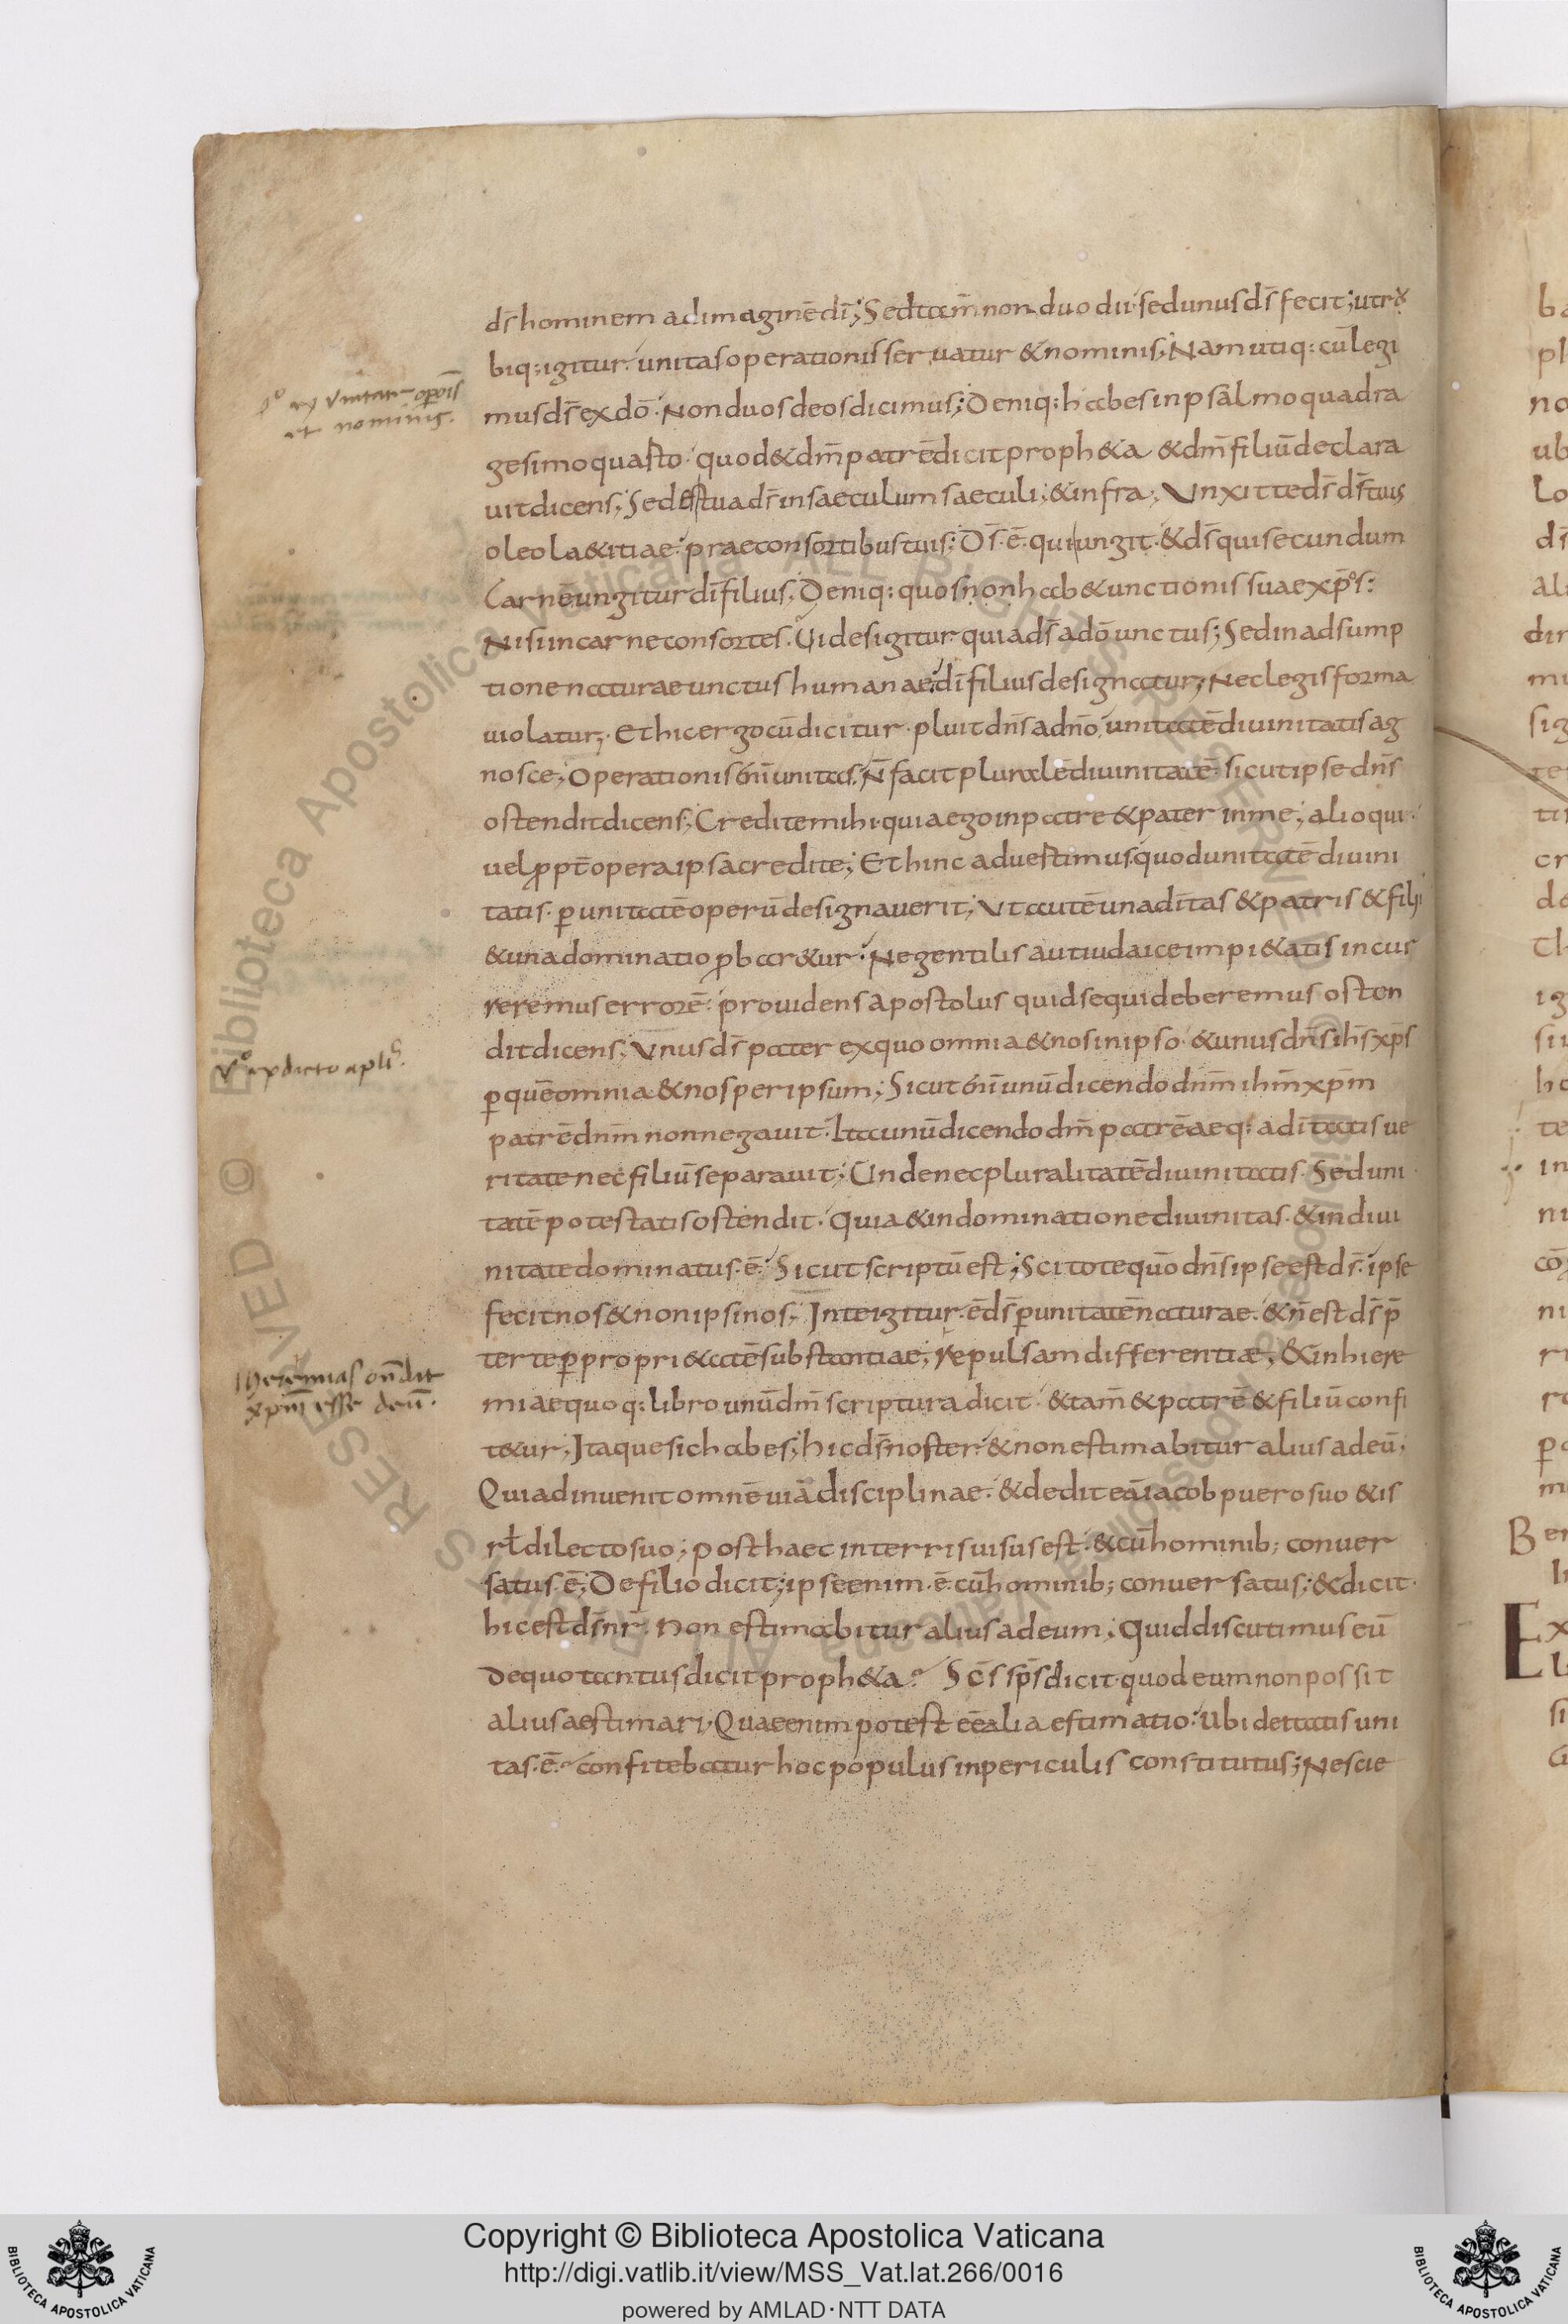 dr̄ hominem ad imaginē dī; Sed tam̄ non duo dii· sed unus ds̄ fecit; utrӯ
biq; igitur unitas operationis servatur & nominis; Nam utiq; cū legi
mus dm̄ ex dō· Non duos deos dicimus; Deniq; habes in psalmo quadra
gesimo quarto· quod & dm̄ patrē dicit proph&a & dm̄ filiū declara
uit dicens; Sedes tua ds̄ in saeculum saeculi; & infra; Unxit te ds̄ ds̄ tuus
oleo la&itiae· prae consortibus tuis; Ds̄ ·ē· qui ungit· & ds̄ qui secundum
Carnē ungitur dī filius; Deniq; quos non hab& unctionis suae xp̄s:
Nisi in carne consortes· Uides igitur quia ds̄ a dō unctus; Sed in adsump
tione naturae unctus humanae· dī filius designatur; Nec legis forma
uiolatur; Et hic ergo cū dicitur· pluit dn̄s a dn̄o· unitatē diuinitatis ag
nosce; Operationis enī unitas· N̄ facit pluralē diuinitatē· sicut ipse dn̄s
ostendit dicens; Credite mihi· quia ego in patre & pater in me; alioqui·
uel ꝓpt̄ opera ipsa credite; Et hinc aduertimus quod unitatē diuini
tatis· ꝑ unitatē operū designauerit; Ut autē una dītas & patris & filii
& una dominatio ꝓbar&ur· Ne gentilis aut iudaice impi&atis incur
reremus errorē· prouidens apostolus quid sequi deberemus osten
dit dicens; Unus ds̄ pater ex quo omnia & nos in ipso· & unus dn̄s ih̄s xp̄s
ꝑ quē omnia & nos per ipsum; Sicut enī unū dicendo dn̄m ih̄m xp̄m
patrē dn̄m non negauit· Ita cunū dicendo dm̄ patrē aeq; adītatis ue
ritate nec filiū separauit; Unde nec pluralitatē diuinitatis· Sed uni·
tatē potestatis ostendit· Quia & in dominatione diuinitas· & in diui
nitate dominatus·ē· Sicut scriptū est; Scitote quō dn̄s ipse est ds̄· ipse
fecit nos & non ipsi nos; In te igitur·ē ds̄ ꝑ unitatē naturae· & n̄ est ds̄ p̄
ter te ꝑ propri&atē substantiae; Repulsam differentiæ; & in hiere
miae quoq; libro unū dm̄ scriptura dicit· & tam̄ & patrē & filiū confi
t&ur; Itaque sic habes; hic ds̄ noster· & non estimabitur alius ad eū;
Qui adinuenit omnē uiā disciplinae· & dedit eā iacob puero suo & is
rł dilecto suo; post haec in terris uisus est· & cū hominib; conuer
satus·ē; De filio dicit; ipse enim·ē cū hominib; conuersatus; & dicit·
hic est ds̄ nr̄· Non estimabitur alius ad eum; Quid discutimus eū
De quo tantus dicit proph&a· Sc̄s sps̄ dicit· quod eum non possit
alius aestimari· Quae enim potest eē alia estimatio· Ubi deitatis uni
tas·ē· confitebatur hoc populus in periculis constitutus; Nescie
et nominis.
Vº ex dicto apłi
Hieremias on̄dit
xpm̄ esse deū·
Copyright © Biblioteca Apostolica Vaticana
http://digi.vatlib.it/view/MSS_Vat.lat.266/0016
powered by AMLAD·NTT DATA
BIBLIOTECA APOSTOLICA VATICANA
BIBLIOTECA APOSTOLICA VATICANA